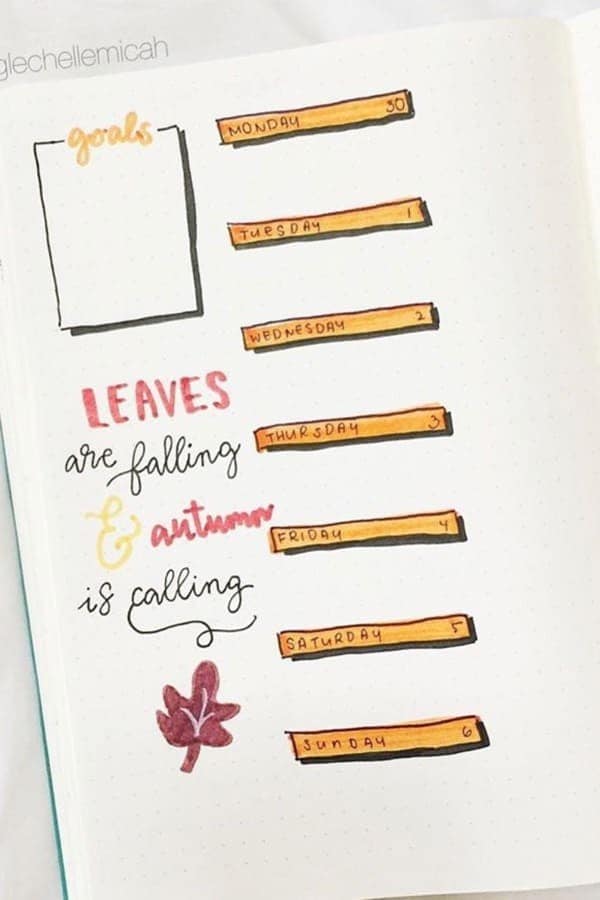 glechellemicah
goals
MONDAY 30
TUESDAY 1
WEDNESDAY 2
THURSDAY 3
FRIDAY 4
SATURDAY 5
SUNDAY 6
LEAVES
are falling
& autumn
is calling